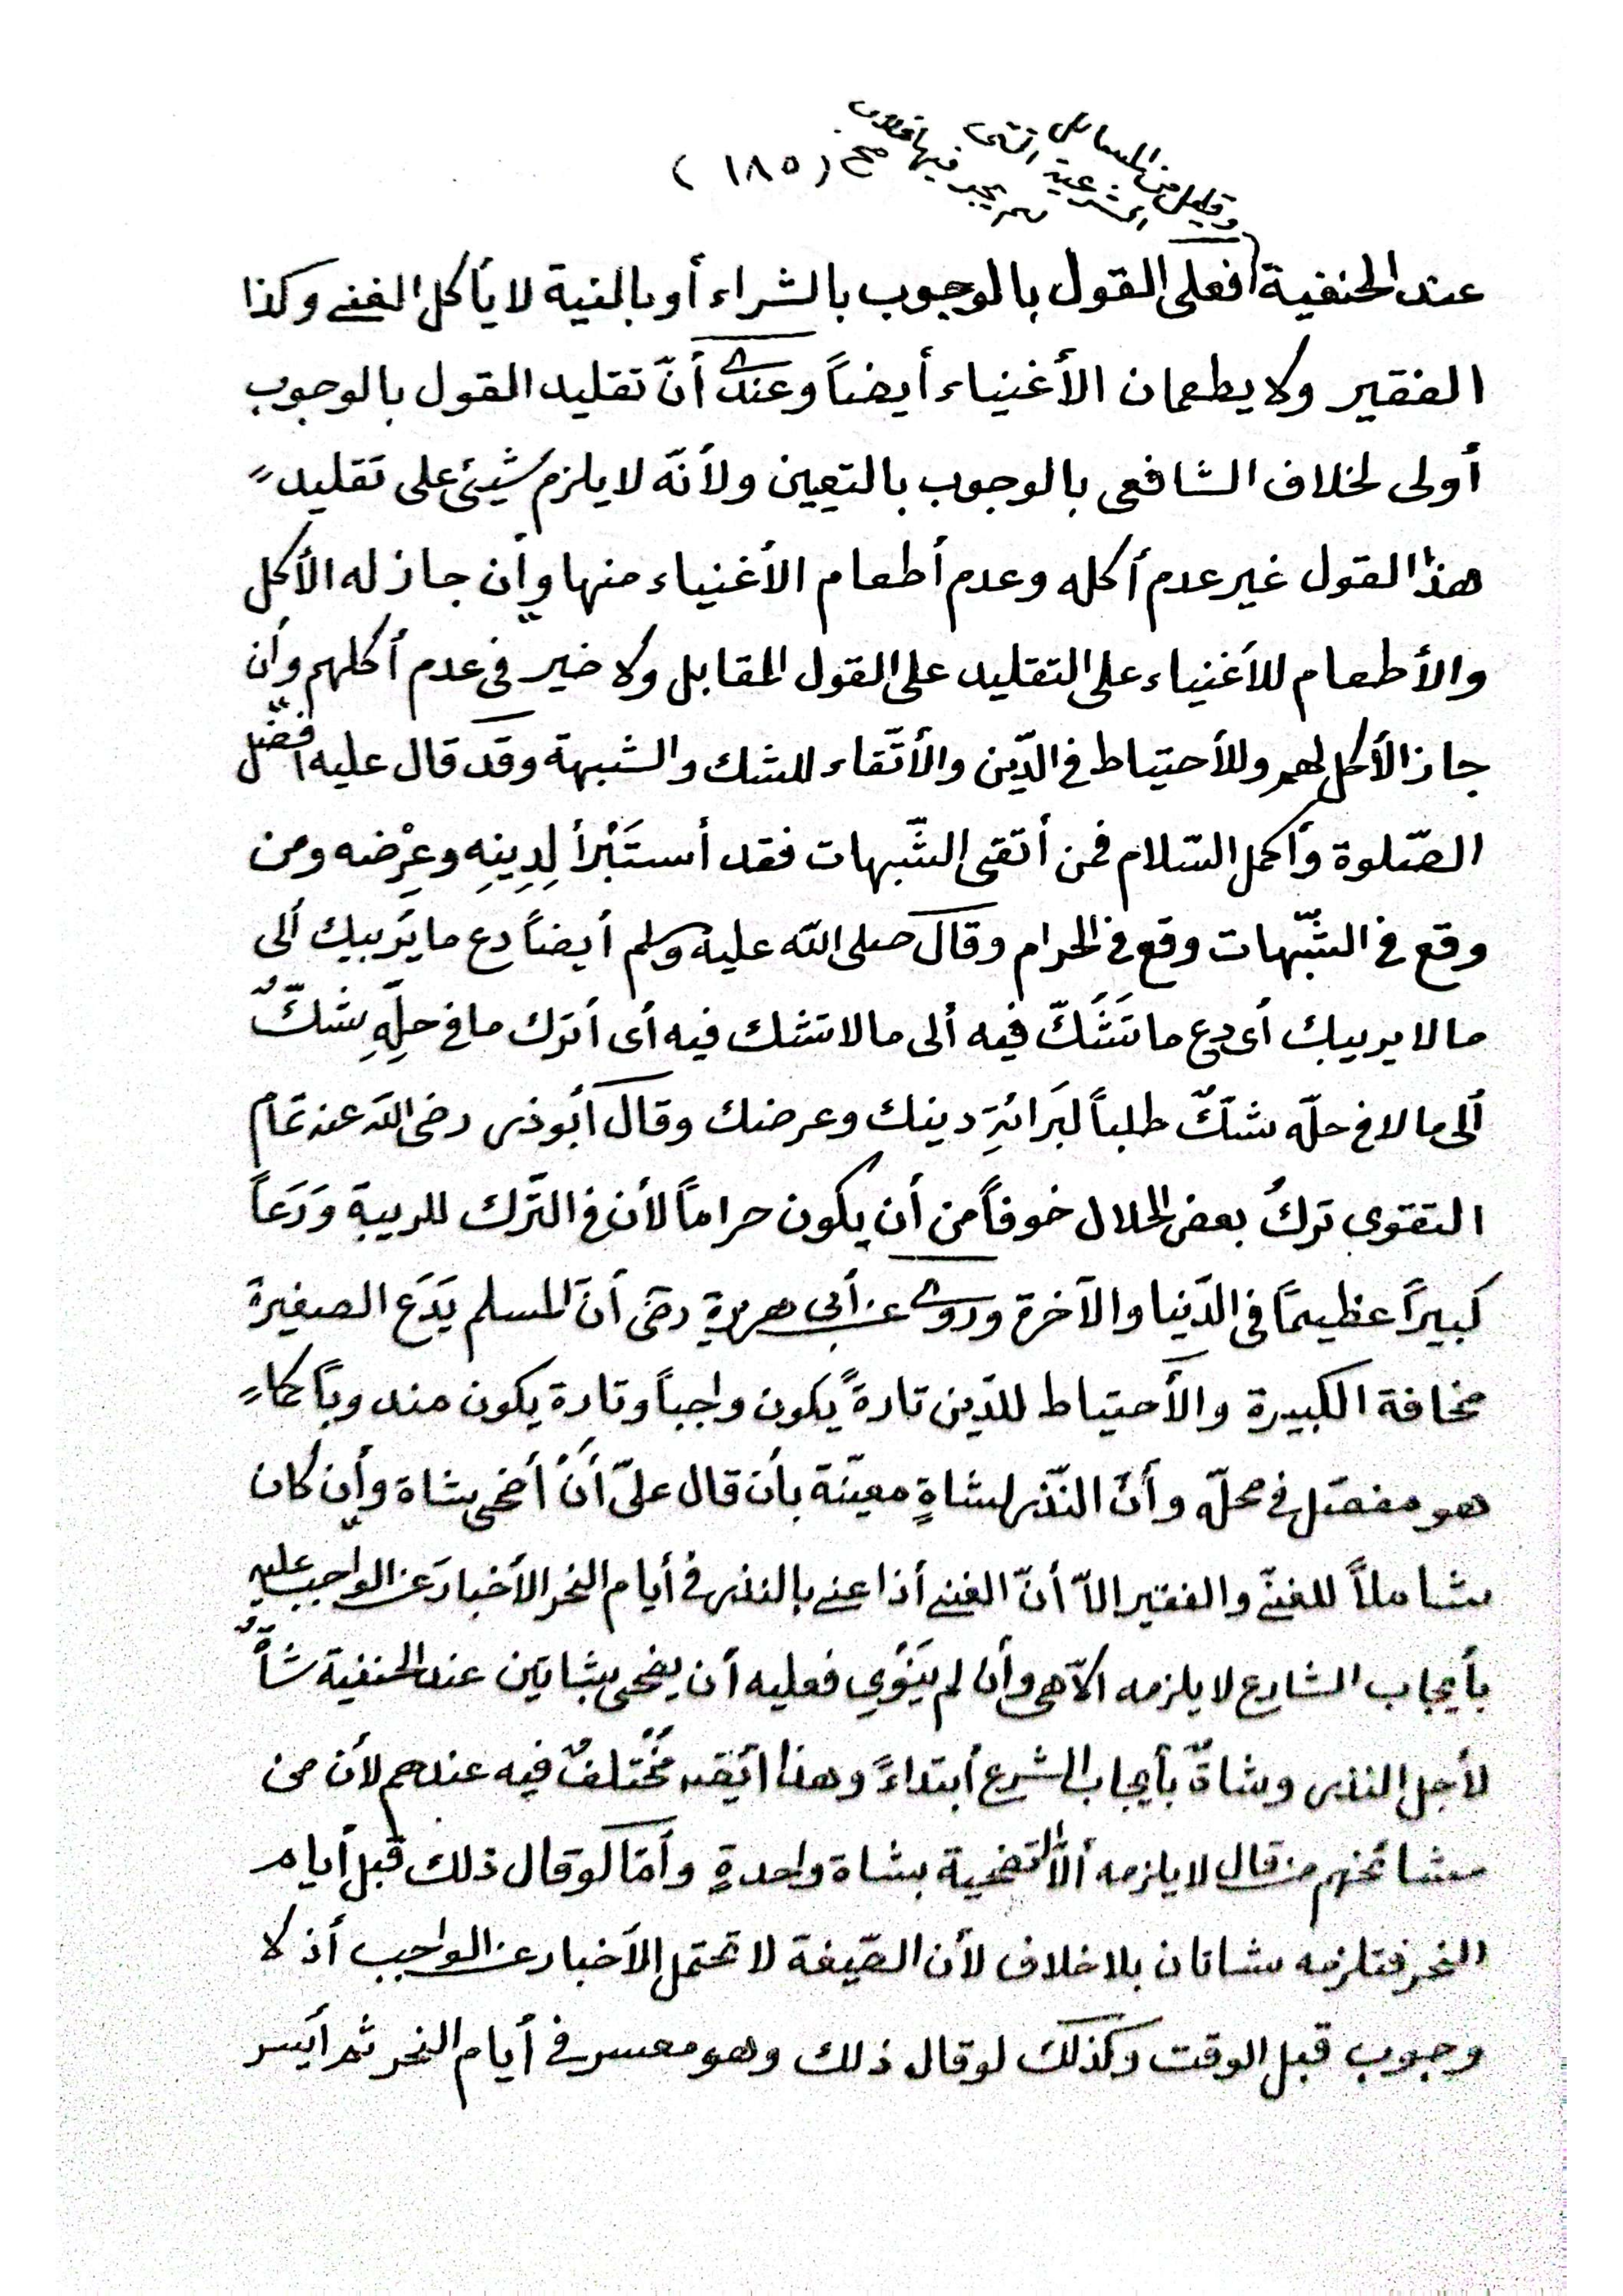 وقليل من المسائل
الشرعية التي
لم يجب فيها خلاف
صح (١٨٥)
عند الحنفية فعلى القول بالوجوب بالشراء أو بالنية لا يأكل الغني وكذا
الفقير ولا يطعمان الأغنياء أيضاً وعندى أنّ تقليد القول بالوجوب
أولى لخلاف الشافعى بالوجوب بالتعيين ولأنّه لا يلزم شيئ على تقليد
هذا القول غير عدم أكله وعدم أطعام الأغنياء منها وأن جاز له الأكل
والأطعام للأغنياء على التقليد على القول المقابل ولا خير فى عدم أكلهم وأن
جاز الأكل لهم وللأحتياط فى الدّين والأتّقاء للشك والشبهة وقد قال عليه افضل
الصّلوة وأكمل السّلام فمن أتقى الشّبهات فقد أستَبْرأ لِدِينِهِ وعِرْضه ومن
وقع فى الشّبّهات وقع فى الحرام وقال صلى الله عليه وسلم أيضاً دع ما يَريبك ألى
ما لا يريبك أى دع ما تَشَكّ فيه ألى ما لا تشك فيه أى أترك ما فى حِلِّهِ شَكٌّ
ألى ما لا فى حلّه شكٌّ طلباً لبَرائةِ دينك وعرضك وقال أبو ذر رضى الله عنه تمام
التقوى تركُ بعض الحلال خوفاً من أن يكون حراماً لأن فى التّرك للريبة وَرَعاً
كبيراً عظيماً فى الدّنيا والآخرة وروى عن أبى هريرة رضى أنّ المسلم يَدَع الصغيرة
مخافة الكبيرة والأحتياط للدّين تارةً يكون واجباً وتارة يكون مندوباً كما
هو مفصّل فى محلّه وأنّ النّذر لشاةٍ معيّنة بأن قال علىّ أنْ أضحى بشاة وأن كان
شاملاً للغنىّ والفقير الاّ أنّ الغنى أذا عنى بالنذر فى أيام النحر الأخبار عن الواجب عليه
بأيجاب الشارع لا يلزمه الاّ هى وأن لم يَنْوِي فعليه أن يضحى بشاتين عند الحنفية شاةٌ
لأجل النذر وشاةٌ بأيجاب الشرع أبتداءً وهذا مُخْتلفٌ فيه عندهم لأن من
مشائخهم من قال لا يلزمه ألاّ التضحية بشاة واحدةٍ وأمّا لو قال ذلك قبل أيام
النحر فتلزمه شاتان بلا خلاف لأن الصّيغة لا تحتمل الأخبار عن الواجب أذ لا
وجوب قبل الوقت وكذلك لو قال ذلك وهو معسر فى أيام النحر ثم أيسر